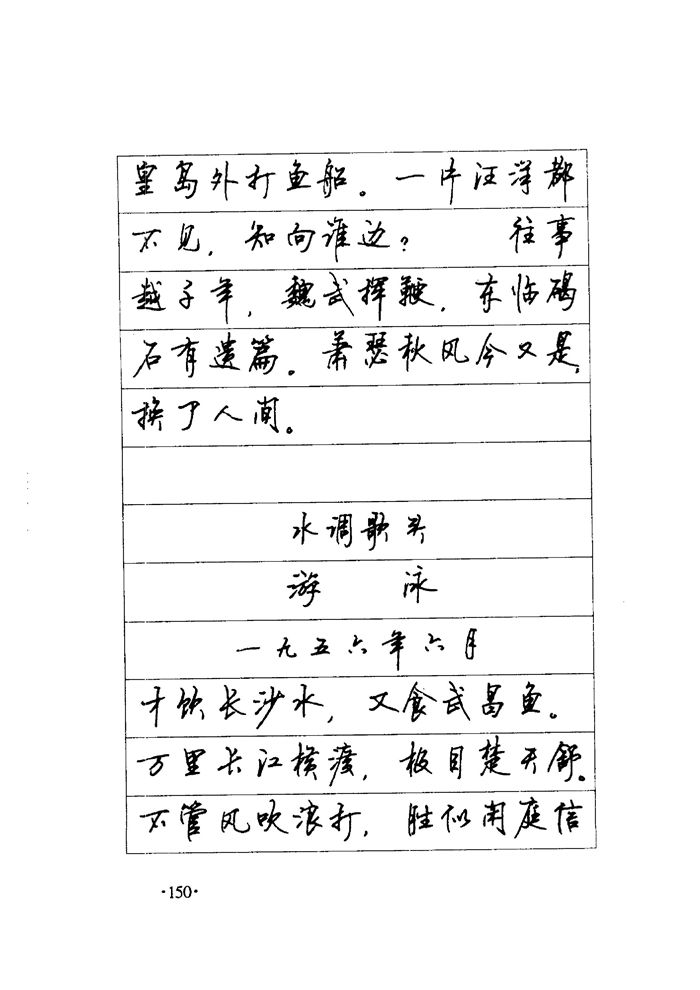 皇岛外打鱼船。一片汪洋都
不见,知向谁边?　　往事
越千年,魏武挥鞭,东临碣
石有遗篇。萧瑟秋风今又是,
换了人间。
水调歌头
游　泳
一九五六年六月
才饮长沙水,又食武昌鱼。
万里长江横渡,极目楚天舒。
不管风吹浪打,胜似闲庭信
·150·